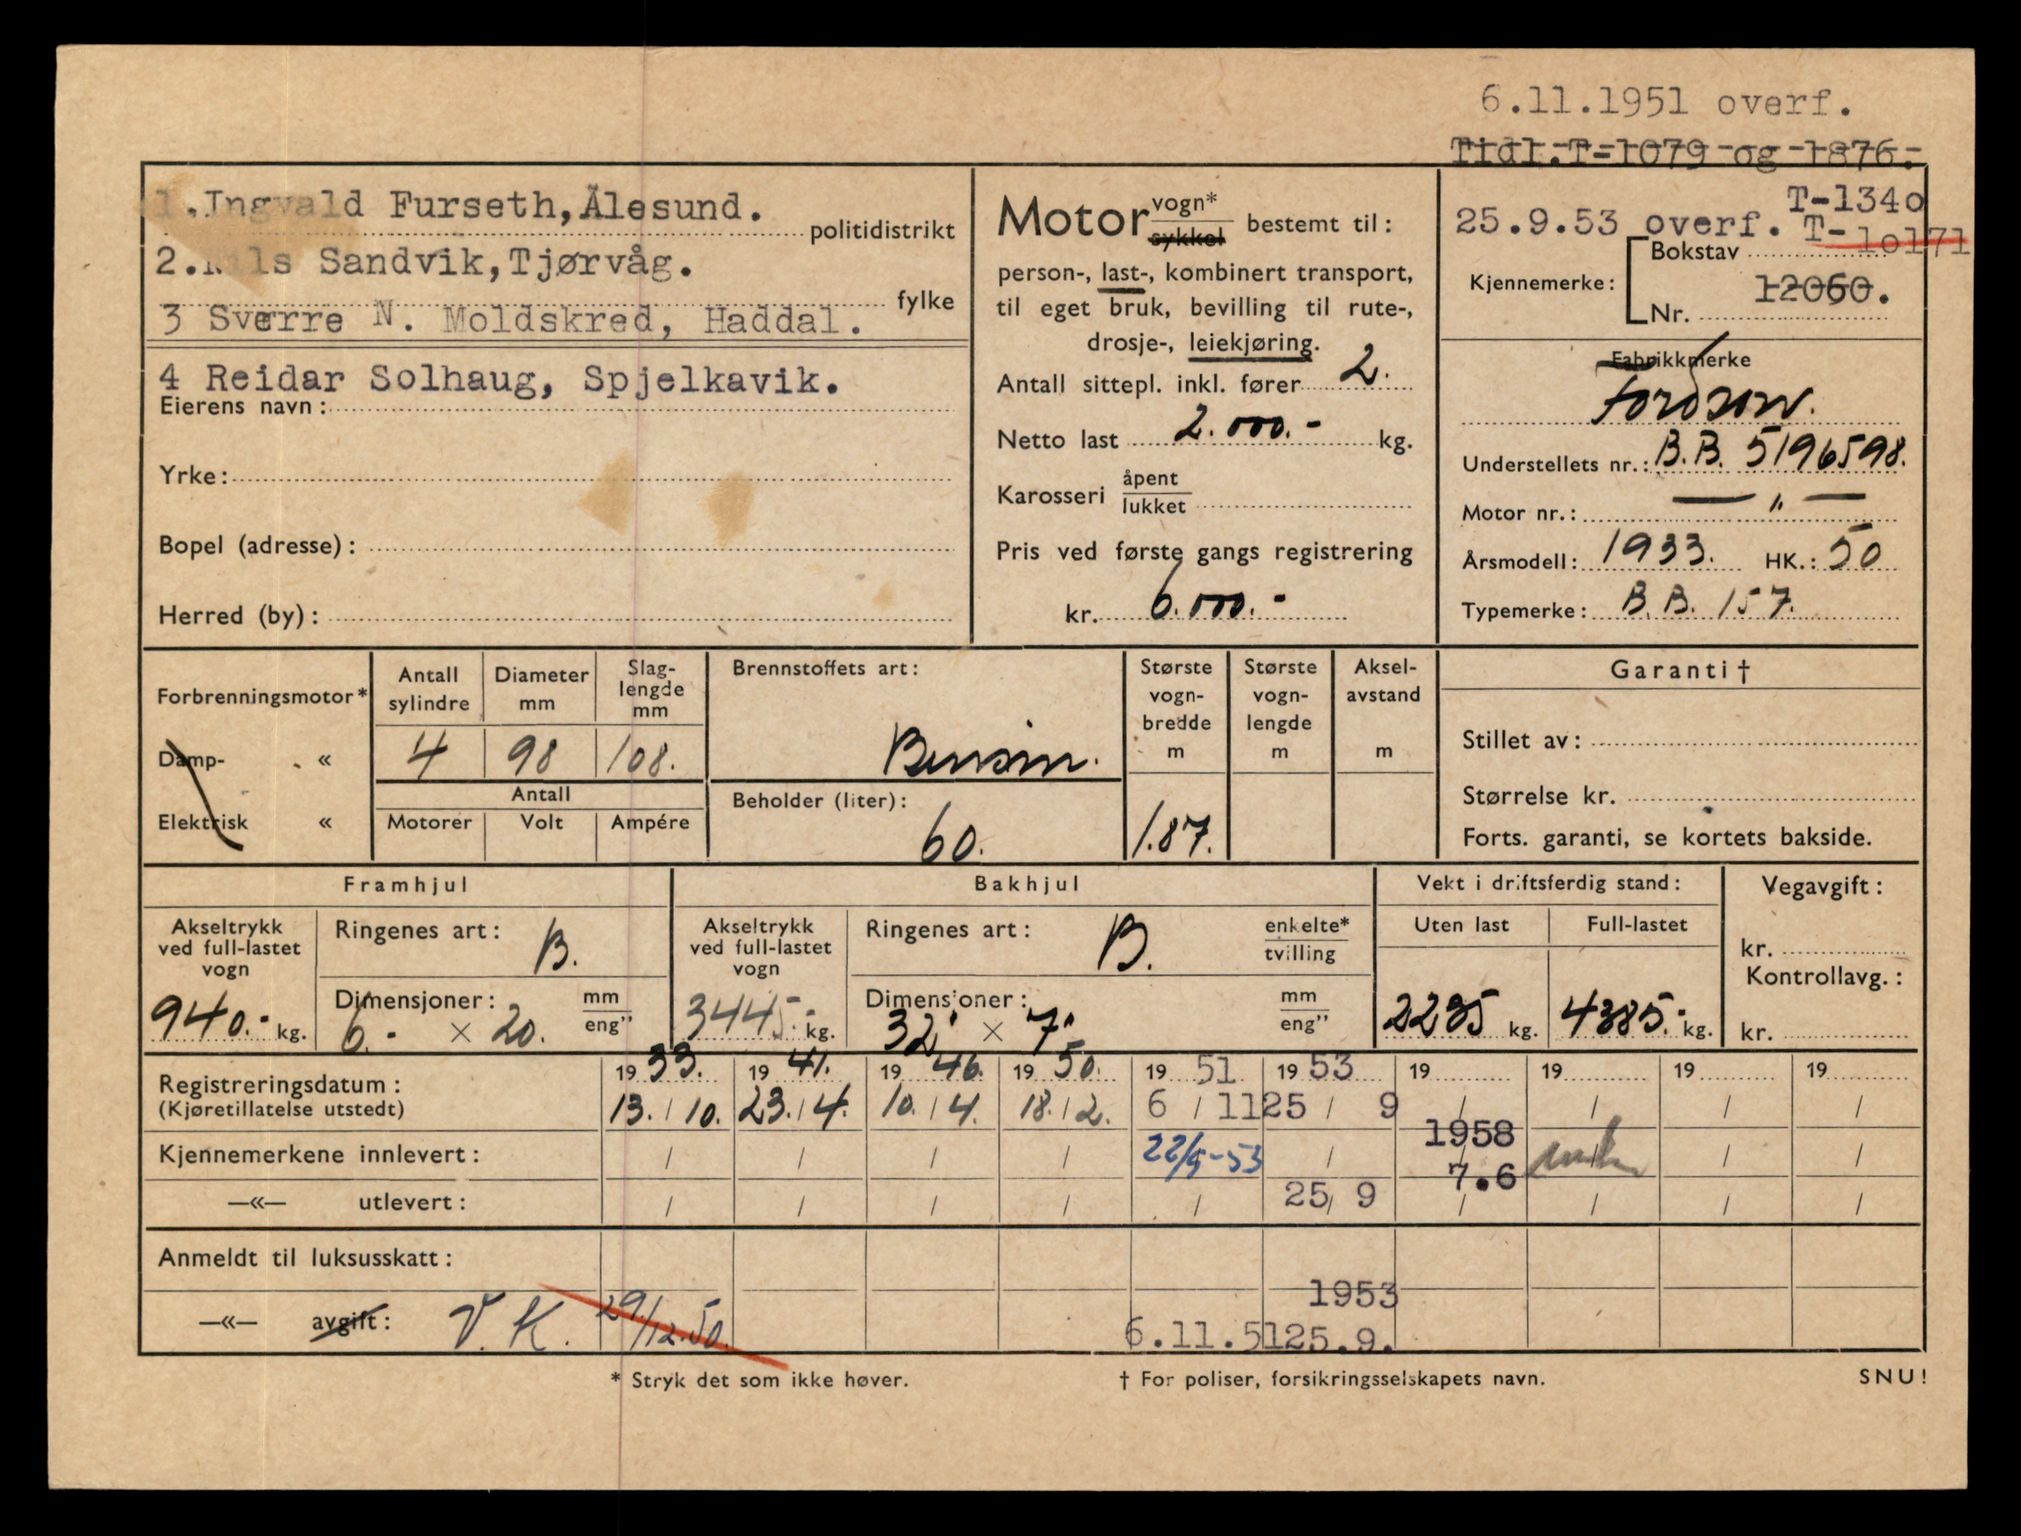 6.11.1951 overf.
Tidl.T-1079 og 1876.
1.Ingvald Furseth, Ålesund.
politidistrikt
2.Nils Sandvik, Tjørvåg.
fylke
3 Sverre N. Moldskred, Haddal.
4 Reidar Solhaug, Spjelkavik.
Eierens navn:
Yrke:
Bopel (adresse):
Herred (by):
Motor vogn* sykkel bestemt til:
person-, last-, kombinert transport,
til eget bruk, bevilling til rute-,
drosje-, leiekjøring.
Antall sittepl. inkl. fører 2.
Netto last 2.000.- kg.
Karosseri åpent lukket
Pris ved første gangs registrering
kr. 6.000.-
T-1340
25.9.53 overf. T-10171
Bokstav
Kjennemerke:
12060.
Nr.
Fabrikkmerke
Fordson.
Understellets nr.: B.B. 5196598.
Motor nr.: — " —
Årsmodell: 1933. HK.: 50
Typemerke: B.B. 157.
Forbrenningsmotor*
Damp- «
Elektrisk «
Antall sylindre
Diameter mm
Slaglengde mm
4 98 108.
Antall
Motorer Volt Ampére
Brennstoffets art:
Bensin.
Beholder (liter):
60.
Største vogn-bredde m
1.87.
Største vogn-lengde m
Aksel-avstand m
Garanti †
Stillet av:
Størrelse kr.
Forts. garanti, se kortets bakside.
Framhjul
Akseltrykk ved full-lastet vogn
940.- kg.
Ringenes art: B.
Dimensjoner: mm eng"
6.- × 20.
Bakhjul
Akseltrykk ved full-lastet vogn
3445.- kg.
Ringenes art: B. enkelte* tvilling
Dimensjoner: mm eng"
32" × 7"
Vekt i driftsferdig stand:
Uten last Full-lastet
2235 kg. 4385.- kg.
Vegavgift:
kr.
Kontrollavg.:
kr.
Registreringsdatum: 1933. 1941. 1946. 1950. 1951 1953 19 19 19 19
(Kjøretillatelse utstedt) 13./10. 23./4. 10./4. 18./2. 6/11 25/9 / / / /
1958
Kjennemerkene innlevert: / / / / 22/9-53 / 7.6 / / /
—«— utlevert: / / / / / 25/9 / / / /
Anmeldt til luksusskatt:
1953
—«— avgift: V.K. 29/12.50. 6.11.51 25.9.
* Stryk det som ikke høver.
† For poliser, forsikringsselskapets navn.
SNU!